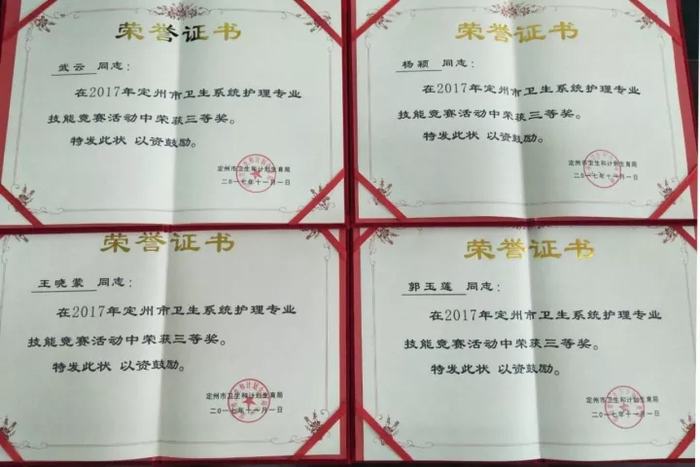 荣誉证书
武云 同志：
在2017年定州市卫生系统护理专业
技能竞赛活动中荣获三等奖。
特发此状 以资鼓励。
定州市卫生和计划生育局
二〇一七年十一月一日
荣誉证书
杨颖 同志：
在2017年定州市卫生系统护理专业
技能竞赛活动中荣获三等奖。
特发此状 以资鼓励。
定州市卫生和计划生育局
二〇一七年十一月一日
荣誉证书
王晓蒙 同志：
在2017年定州市卫生系统护理专业
技能竞赛活动中荣获三等奖。
特发此状 以资鼓励。
定州市卫生和计划生育局
二〇一七年十一月一日
荣誉证书
郭玉莲 同志：
在2017年定州市卫生系统护理专业
技能竞赛活动中荣获三等奖。
特发此状 以资鼓励。
定州市卫生和计划生育局
二〇一七年十一月一日